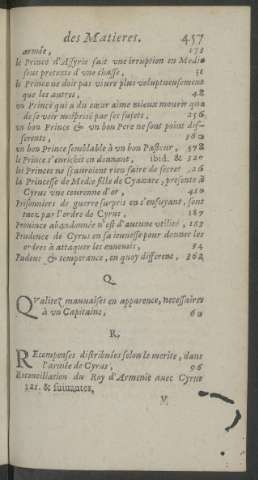 des Matieres. 457
armée, 171
le Prince d'Assyrie fait vne irruption en Medie
sous pretexte d'vne chasse, 31
le Prince ne doit pas viure plus voluptueusement
que les autres, 48
vn Prince qui a du cœur aime mieux mourir que
de se voir mesprisé par ses sujets, 256
vn bon Prince & vn bon Pere ne sont point dif-
ferents, 360
vn bon Prince semblable à vn bon Pasteur, 378
le Prince s'enrichit en donnant, ibid. & 320
les Princes ne sçauroient rien faire de secret 226
la Princesse de Medie fille de Cyaxare, presente à
Cyrus vne couronne d'or, 410
Prisonniers de guerre surpris en s'enfuyant, sont
tuez par l'ordre de Cyrus, 187
Prouince abandonnée n'est d'aucune vtilité, 167
Prudence de Cyrus en sa ieunesse pour donner les
ordres à attaquer les ennemis, 34
Pudeur & temperance, en quoy different, 362
Q
QValitez mauuaises en apparence, necessaires
à vn Capitaine, 60
R,
REcompenses distribuées selon le merite, dans
l'armée de Cyrus, 96
Reconciliation du Roy d'Armenie auec Cyrus
121. & suiuantes,
V